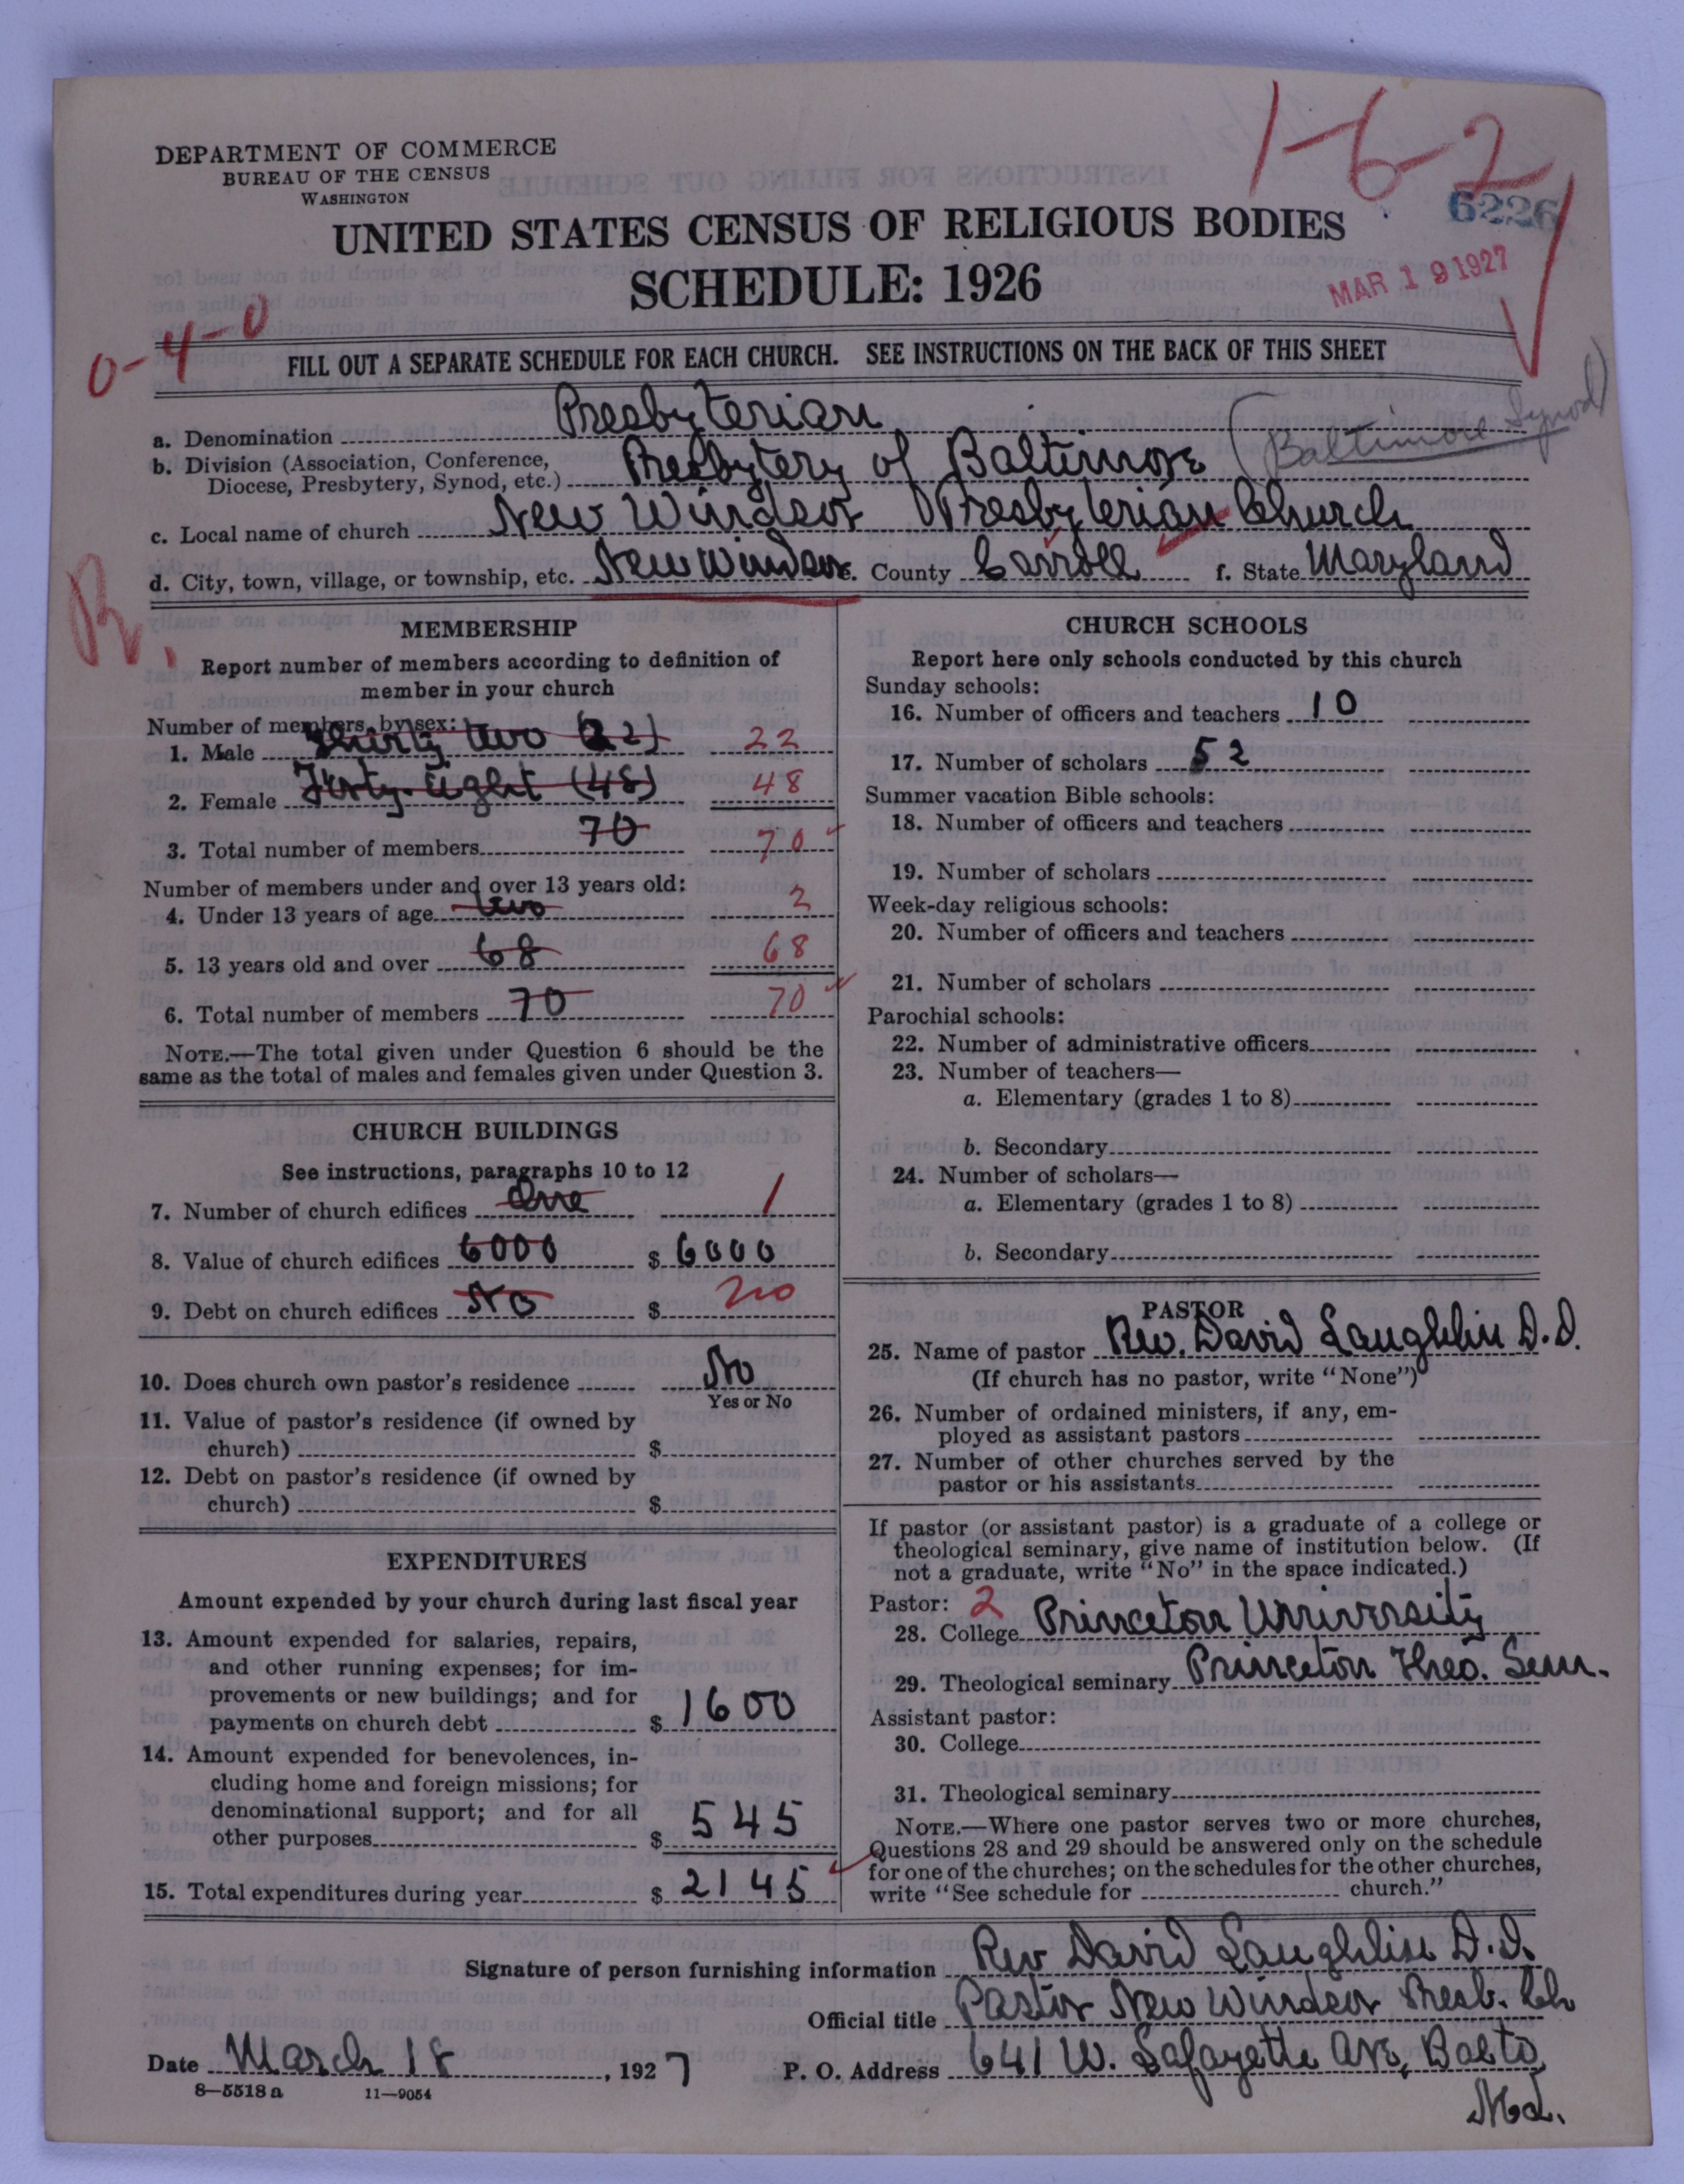 1-6-2
DEPARTMENT OF COMMERCE
BUREAU OF THE CENSUS
WASHINGTON
6226
UNITED STATES CENSUS OF RELIGIOUS BODIES
SCHEDULE: 1926
MAR 19 1927
0-4-0
FILL OUT A SEPARATE SCHEDULE FOR EACH CHURCH. SEE INSTRUCTIONS ON THE BACK OF THIS SHEET
a. Denomination Presbyterian
b. Division (Association, Conference, Diocese, Presbytery, Synod, etc.) Presbytery of Baltimore (Baltimore Synod)
c. Local name of church New Windsor Presbyterian Church
d. City, town, village, or township, etc. New Windsor e. County Carroll f. State Maryland
R.
MEMBERSHIP
Report number of members according to definition of
member in your church
Number of members, by sex:
1. Male two (22) 22
2. Female Forty-Eight (48) 48
3. Total number of members 70 70
Number of members under and over 13 years old:
4. Under 13 years of age two 2
5. 13 years old and over 68 68
6. Total number of members 70 70
NOTE.—The total given under Question 6 should be the
same as the total of males and females given under Question 3.
CHURCH BUILDINGS
See instructions, paragraphs 10 to 12
7. Number of church edifices One 1
8. Value of church edifices 6000 $ 6000
9. Debt on church edifices No $ no
10. Does church own pastor's residence No
Yes or No
11. Value of pastor's residence (if owned by
church) $
12. Debt on pastor's residence (if owned by
church) $
EXPENDITURES
Amount expended by your church during last fiscal year
13. Amount expended for salaries, repairs,
and other running expenses; for im-
provements or new buildings; and for
payments on church debt $ 1600
14. Amount expended for benevolences, in-
cluding home and foreign missions; for
denominational support; and for all
other purposes $ 545
15. Total expenditures during year $ 2145
CHURCH SCHOOLS
Report here only schools conducted by this church
Sunday schools:
16. Number of officers and teachers 10
17. Number of scholars 52
Summer vacation Bible schools:
18. Number of officers and teachers
19. Number of scholars
Week-day religious schools:
20. Number of officers and teachers
21. Number of scholars
Parochial schools:
22. Number of administrative officers
23. Number of teachers—
a. Elementary (grades 1 to 8)
b. Secondary
24. Number of scholars—
a. Elementary (grades 1 to 8)
b. Secondary
PASTOR
25. Name of pastor Rev. David Laughlin D.D.
(If church has no pastor, write "None")
26. Number of ordained ministers, if any, em-
ployed as assistant pastors
27. Number of other churches served by the
pastor or his assistants
If pastor (or assistant pastor) is a graduate of a college or
theological seminary, give name of institution below. (If
not a graduate, write "No" in the space indicated.)
Pastor: 2
28. College Princeton University
29. Theological seminary Princeton Theo. Sem.
Assistant pastor:
30. College
31. Theological seminary
NOTE.—Where one pastor serves two or more churches,
Questions 28 and 29 should be answered only on the schedule
for one of the churches; on the schedules for the other churches,
write "See schedule for church."
Signature of person furnishing information Rev David Laughlin D.D.
Official title Pastor New Windsor Presb. Ch
Date March 18, 1927 P. O. Address 641 W. Lafayette Ave, Balto
Md.
8-5518a 11-9054